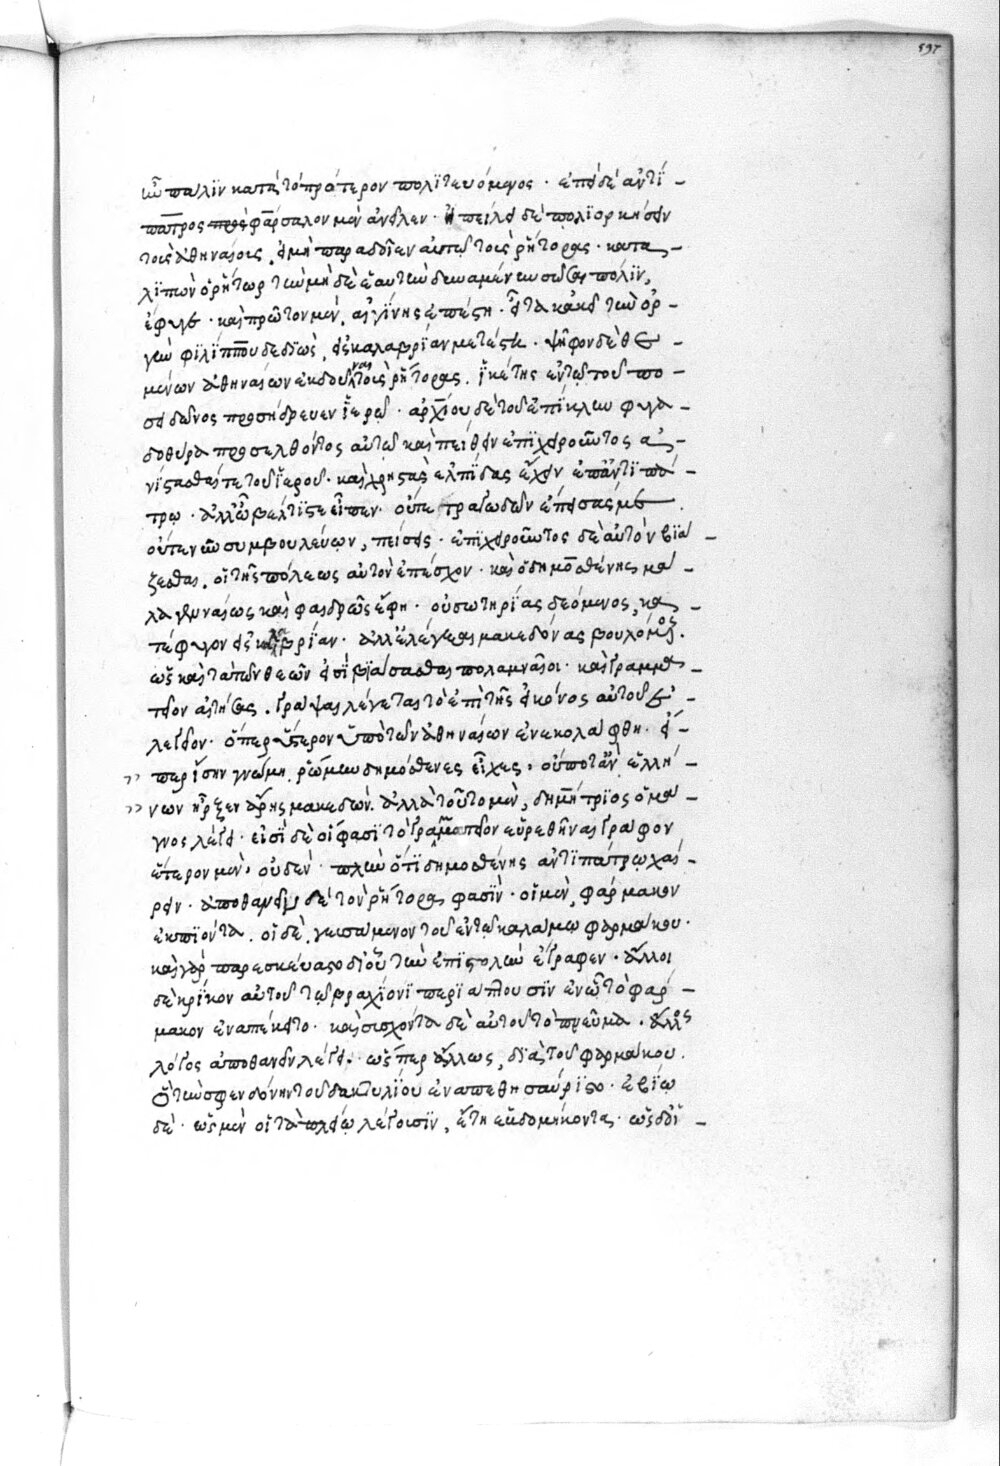 597
ἦν πάλιν κατὰ τὸ πρότερον πολιτευόμενος. ἐπεὶ δὲ ἀντί-
πατρος πρὸς φάρσαλον μὲν ἀνεῖλεν. ἠπείλει δὲ πολιορκήσειν
τοὺς ἀθηναίους, εἰ μὴ παραδοῖεν αὐτῷ τοὺς ῥήτορας. κατα-
λιπὼν ὁ ῥήτωρ τὴν μηδὲ ἑαυτὴν δυναμένην σῶσαι πόλιν,
ἔφυγε. καὶ πρῶτον μὲν, αἰγίνης ἐπέβη. εἶτα κἀκεῖ τὴν ὀρ-
γὴν φιλίππου δεδιὼς, εἰς καλαβρίαν μετέστη. ψῆφον δὲ θε-
μένων ἀθηναίων ἐκδοῦναι τοὺς ῥήτορας. ἱκέτης ἐν τῷ τοῦ πο-
σειδῶνος προσήδρευεν ἱερῷ. ἀρχίου δὲ τοῦ ἐπίκλην φυγα-
δοθήρα προσελθόντος αὐτῷ καὶ πείθειν ἐπιχειροῦντος ἀ-
νίστασθαί τε τοῦ ἱεροῦ. καὶ χρηστὰς ἐλπίδας ἔχειν ἐπ' ἀντιπά-
τρῳ. ἀλλ' ὦ βέλτιστε εἶπεν. οὔτε τραγῳδῶν ἔπεισάς με
οὔτε νῦν συμβουλεύων, πείσεις. ἐπιχειροῦντος δὲ αὐτὸν βιά-
ζεσθαι. οἱ τῆς πόλεως αὐτὸν ἐπέσχον. καὶ ὁ δημοσθένης μά-
λα γενναίως καὶ φαιδρῶς ἔφη. οὐ σωτηρίας δεόμενος, κα-
τέφυγον εἰς καλαβρίαν. ἀλλ' ἐλέγξαι μακεδόνας βουλόμενος.
ὡς καὶ τὰ τῶν θεῶν εἰσὶ βιάσασθαι πολαμναῖοι. καὶ γραμμα-
τεῖον αἰτήσας. γράψαι λέγεται τὸ ἐπὶ τῆς εἰκόνος αὐτοῦ ἐ-
λεγεῖον. ὅπερ ὕστερον ὑπὸ τῶν ἀθηναίων ἐνεκολάφθη. εἴ-
περ ἴσην γνώμῃ ῥώμην δημόσθενες εἶχες, οὔποτ' ἂν ἑλλή-
νων ἦρξεν ἄρης μακεδών. ἀλλὰ τοῦτο μὲν, δημήτριος ὁ μά-
γνης λέγει. εἰσὶ δὲ οἵ φασι τὸ γραμματεῖον εὑρεθῆναι γράφον
ἕτερον μὲν οὐδέν. πλὴν ὅτι δημοσθένης ἀντιπάτρῳ χαί-
ρειν. ἀποθανεῖν δὲ τὸν ῥήτορα φασὶν. οἱ μὲν, φάρμακον
ἐκπιόντα. οἱ δὲ, γευσάμενον τοῦ ἐν τῷ καλάμῳ φαρμάκου.
καὶ γὰρ παρεσκεύαστο δι' οὗ τὴν ἐπιστολὴν ἔγραφεν. ἄλλοι
δὲ κρίκον αὐτοῦ τῷ βραχίονι περίαπτουσιν ἐν ᾧ τὸ φάρ-
μακον ἐναπέκειτο. καὶ συσχόντα δὲ αὐτοῦ τὸ πνεῦμα. ἄλλος
λόγος ἀποθανεῖν λέγει. ὥσπερ ἄλλως, διὰ τοῦ φαρμάκου.
ὃ τὴν σφενδόνην τοῦ δακτυλίου ἐναπεθησαύριστο. ἐβίω
δὲ. ὡς μὲν οἱ τὰ πλείω λέγουσιν, ἔτη ἑβδομήκοντα. ὡς δ' οἱ-